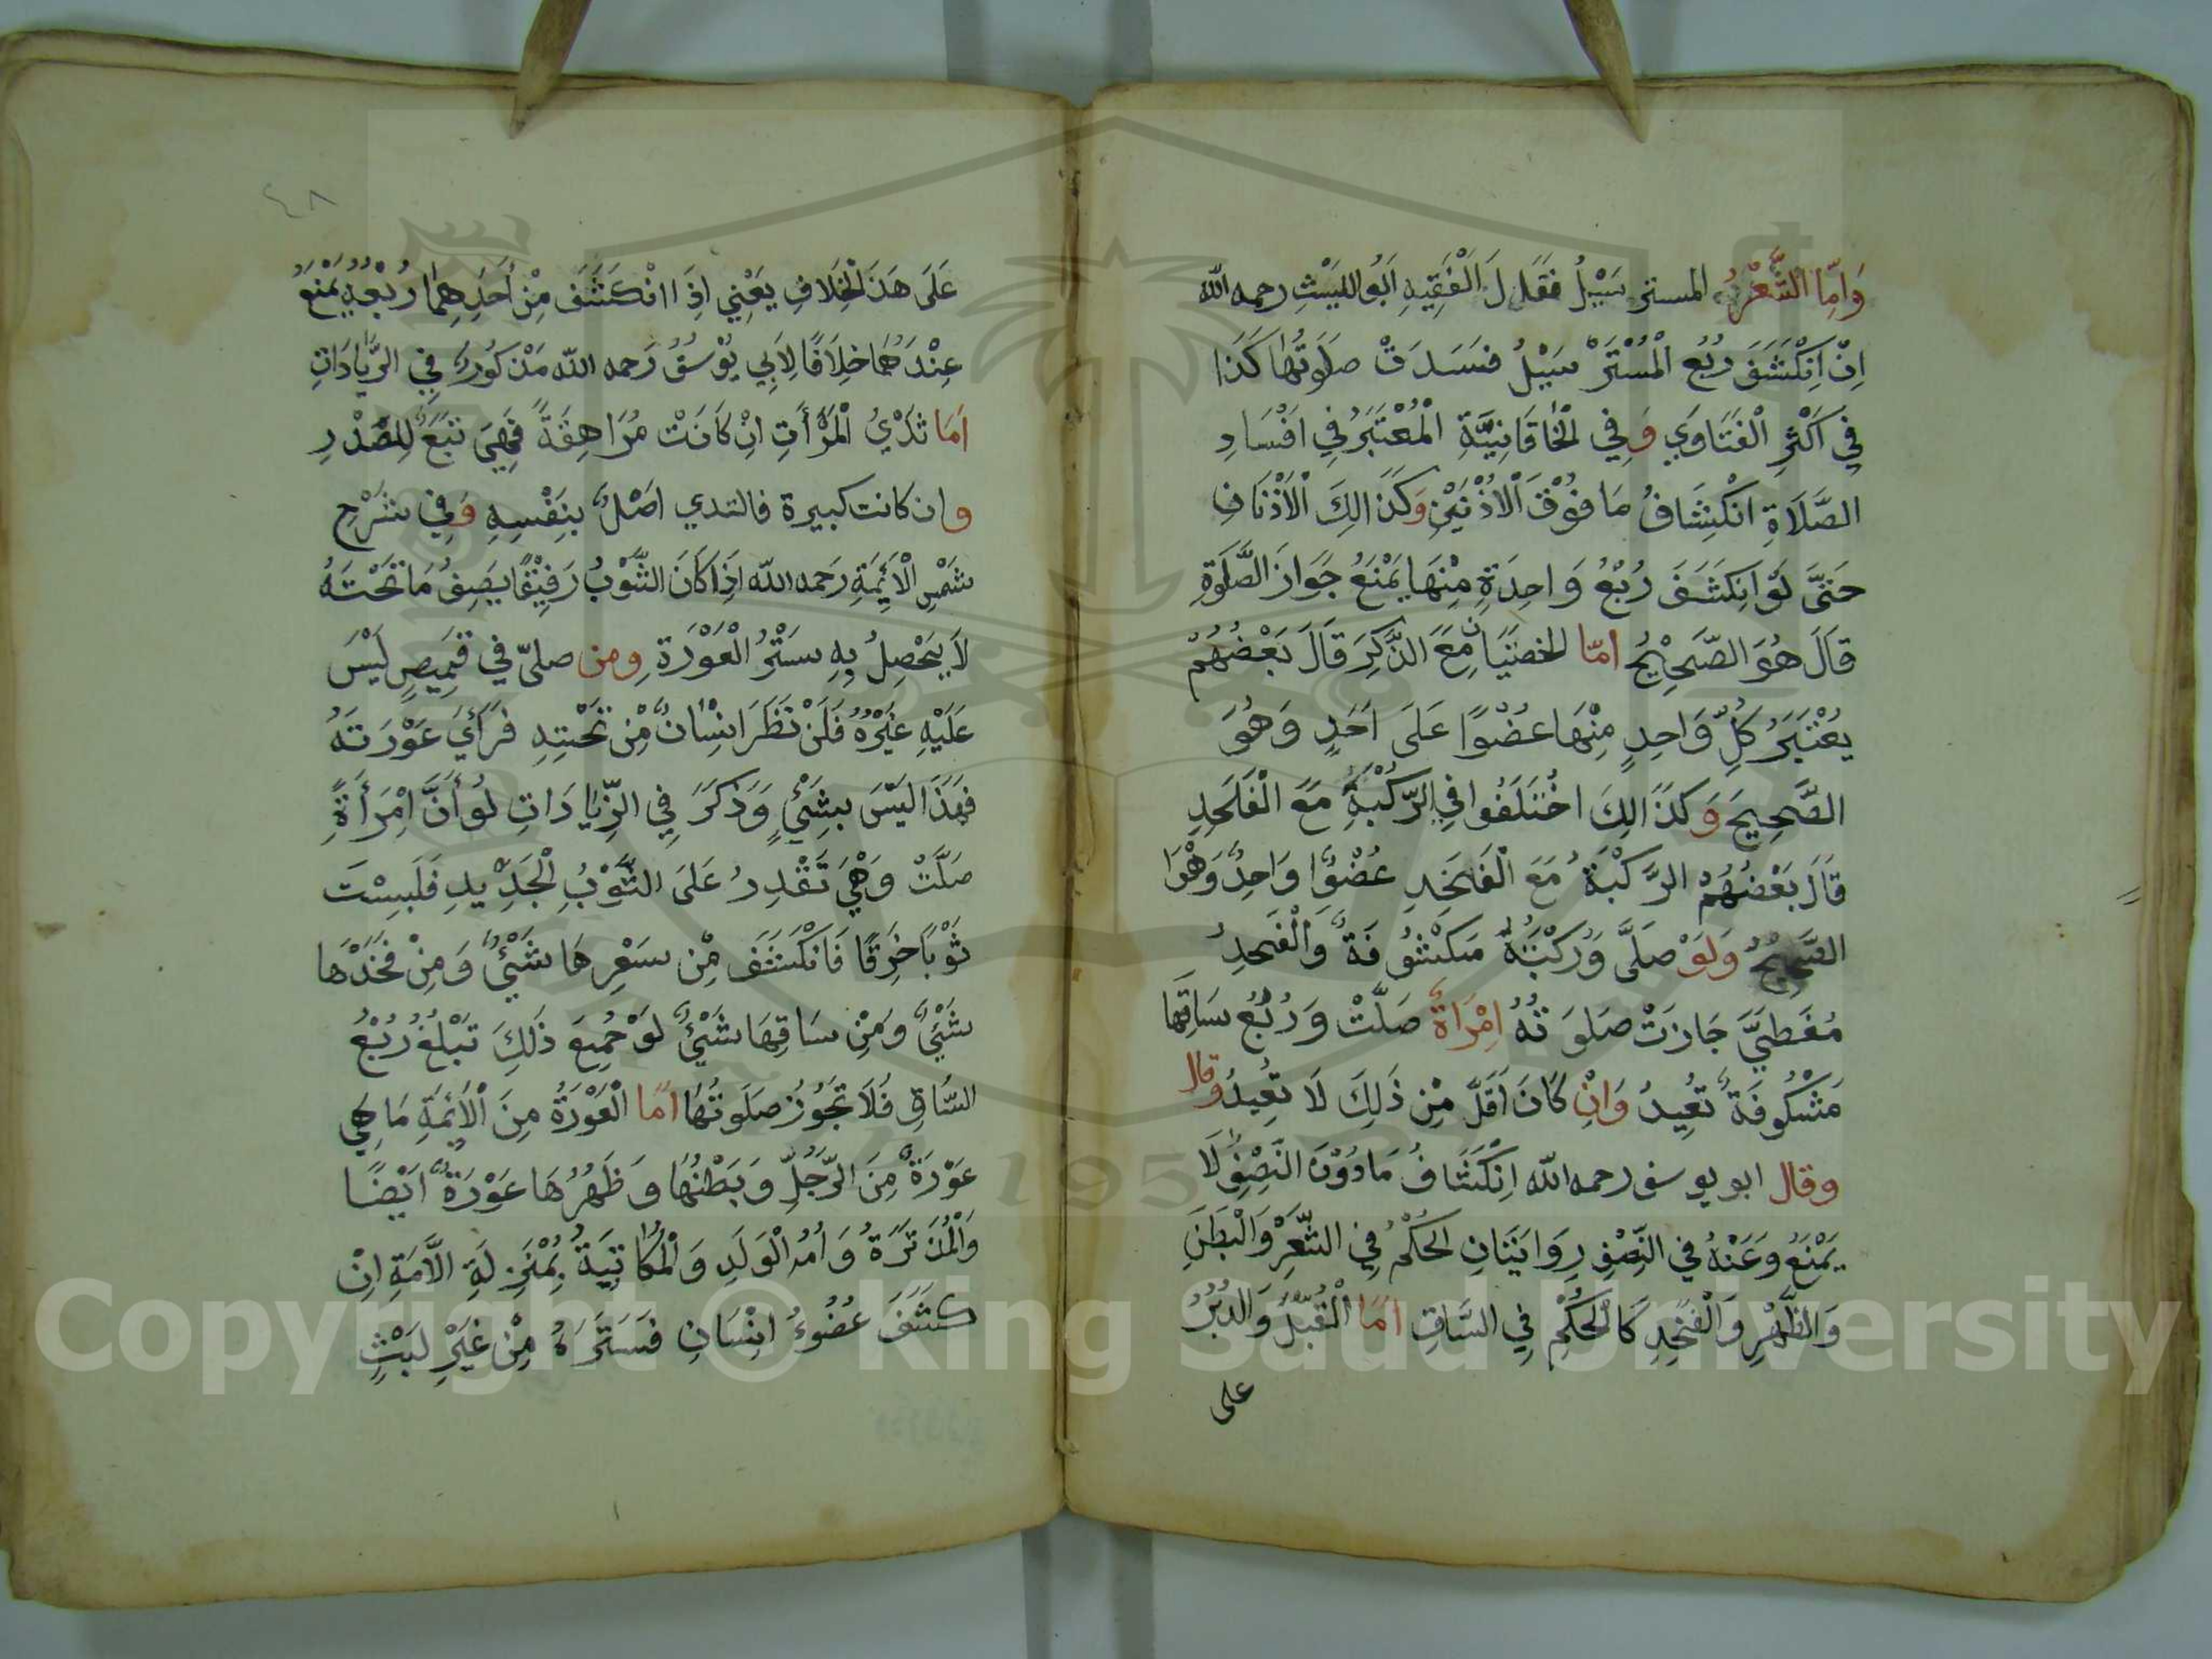 وَاَمَّا الشَّعْرُ المسترسَيْلُ فَقَالَ لَ الْفَقِيهِ اَبُو اللَيْثِ رحمه الله
اِنْ اِنْكَشَفَ رُبُعِ الْمُسْتَرْ سَيْلُ فسَدَتْ صَلَوتُهَا كَذَا
فِي اَكْثَرِ الْفَتَاوَي وَفِي الْخَاقَانِيَّةِ الْمُعْتَبَرُ فِي اِفْسَادِ
الصَّلَاةِ انْكِشَافُ مَا فَوْقَ اَلْاُذْنَيْنِ وَكَذَالِكَ اَلْاُذْنَانِ
حَتَّى لَوْ اَنِكَشَفَ رُبْعُ وَاحِدَةٍ مِنْهَا يَمْنَعُ جَوَازَ الصَّلَوةِ
قَالَ هُوَ الصَّحِيْحُ اَمَّا الخصْيَانِ مَعَ الذَّكَرِ قَالَ بَعْضُهُمْ
يُعْتَبَرُ كُلِّ وَاحِدٍ مِنْهَا عضْوًا عَلَى اَحَدٍ وَهُوَ
الصَّحِيحَ وَكَذَالِكَ اخْتَلَفُوا فِي الرُّكْبَةِ مَعَ الْفَخِدِ
قَالَ بَعْضُهُمْ الرُّكْبَةُ مَعَ الْفَخِدِ عُضْوًا وَاحِدٌ وَهْوَا
الصَّحِيحُ وَلَوْ صَلَّى وَرُكْبَتَهُ مَكْشُوفَةٌ وَالْفَخِدُ
مُغَطَيَّ جَازَتْ صَلوَتُهُ اِمْرَاَةٌ صَلَّتْ وَرُبْعُ سَاقِهَا
مَشْكُوفَةٌ تُعِيدُ وَاِنْ كَانَ اَقَلَّ مِنْ ذَلِكَ لَا تُعِيدُ وقال
وقال ابو يوسف رحمه الله اِنْكَشَافُ مَادُوْنَ النَّصِفِ لَا
يَمْنَعُ وَعَنْهُ فِي النَّصْفِ رِوَايَتَانِ الحُكْمُ فِي الشَّعْرِ وَالْبَطَنِ
وَالظَّهْرِ وَالْفَخِدِ كَالْحُكْمِ فِي السَّاقِ اَمَّا الْقُبُلُ وَالدُبُرُ
على
٤٨
عَلَى هَذَ الْخِلَافِ يَعْنِي اِذَا انْكَشَفَ مِنْ اَحَدِهِمَا رُبْعُهُ يَمْنَعُ
عِنْدَهُمَا خِلَافًا لِاَبِي يُوْسُفُ رَحمه الله مَذْكُورٌ فِي الزَّيَادَاتِ
اَمَا ثَدْيُ الْمَرْأَتِ اِنْ كَانَتْ مُرَاهِقَةً فَهِيَ تَبَعٌ لِلصَّدْرِ
وان كانت كبيرة فالتدي اصْلٌ بِنَفْسِهِ وَفِي شَرْحِ
شَمْسِ الْاَئِمَةِ رَحمه الله اِذَا كَانَ الثَّوْبُ رَقِيْقًا يَصِفُ مَا تَحْتَهُ
لَا يَحْصِلُ بِهِ سَتْرُ الْعَوْرَةِ وَمن صلىّ في قَمِيصٍ لَيْسَ
عَلَيْهِ غَيْرُهُ فَلَنْ نَظَرَ اِنْسَانٌ مِنْ تَحْتِهِ فَرَأَيَ عَوْرَتَهُ
فهَذَا لَيْسَ بِشَيْءٍ وَذَكَرَ فِي الزِّيَادَاتِ لَوْ أَنَّ امْرَأَةً
صَلَّتْ وَهْيَ تَقْدِرُ عَلَى الثَّوْبُ الْجَدِيدِ فَلَبِسْتَ
ثَوْبًا خَرِقًا فَانْكَشَفَ مِنْ سَعْرِهَا شَيْئٌ وَمِنْ فَخَذِهَا
شَيْئٌ وَمِنْ سَاقِهَا شَيْئٌ لَوْ جُمِيعَ ذَلِكَ تَبْلُغُ رُبْعُ
السَّاقِ فَلَا تَجُوزُ صَلَوتُهَا اَمَّا الْعَوْرَةُ مِنَ اْلْاَئِمَةِ مَا هِي
عَوْرَةٌ مِنَ الرَّجُلِ وَبَطْنُهَا وَظَهُرُهَا عَوْرَةٌ اَيْضًا
وَالْمُدَ تَرَةُ وَاُمُ الْوَلَدِ وَالْمُكَاتِيَةُ بِمُنْزِلَةِ الاَّمَةِ اِنْ
كَشَفَ عُضُوءُ اِنْسَانٍ فَسَتَرَهُ مِنْ غَيْرِ لَبْثٍ